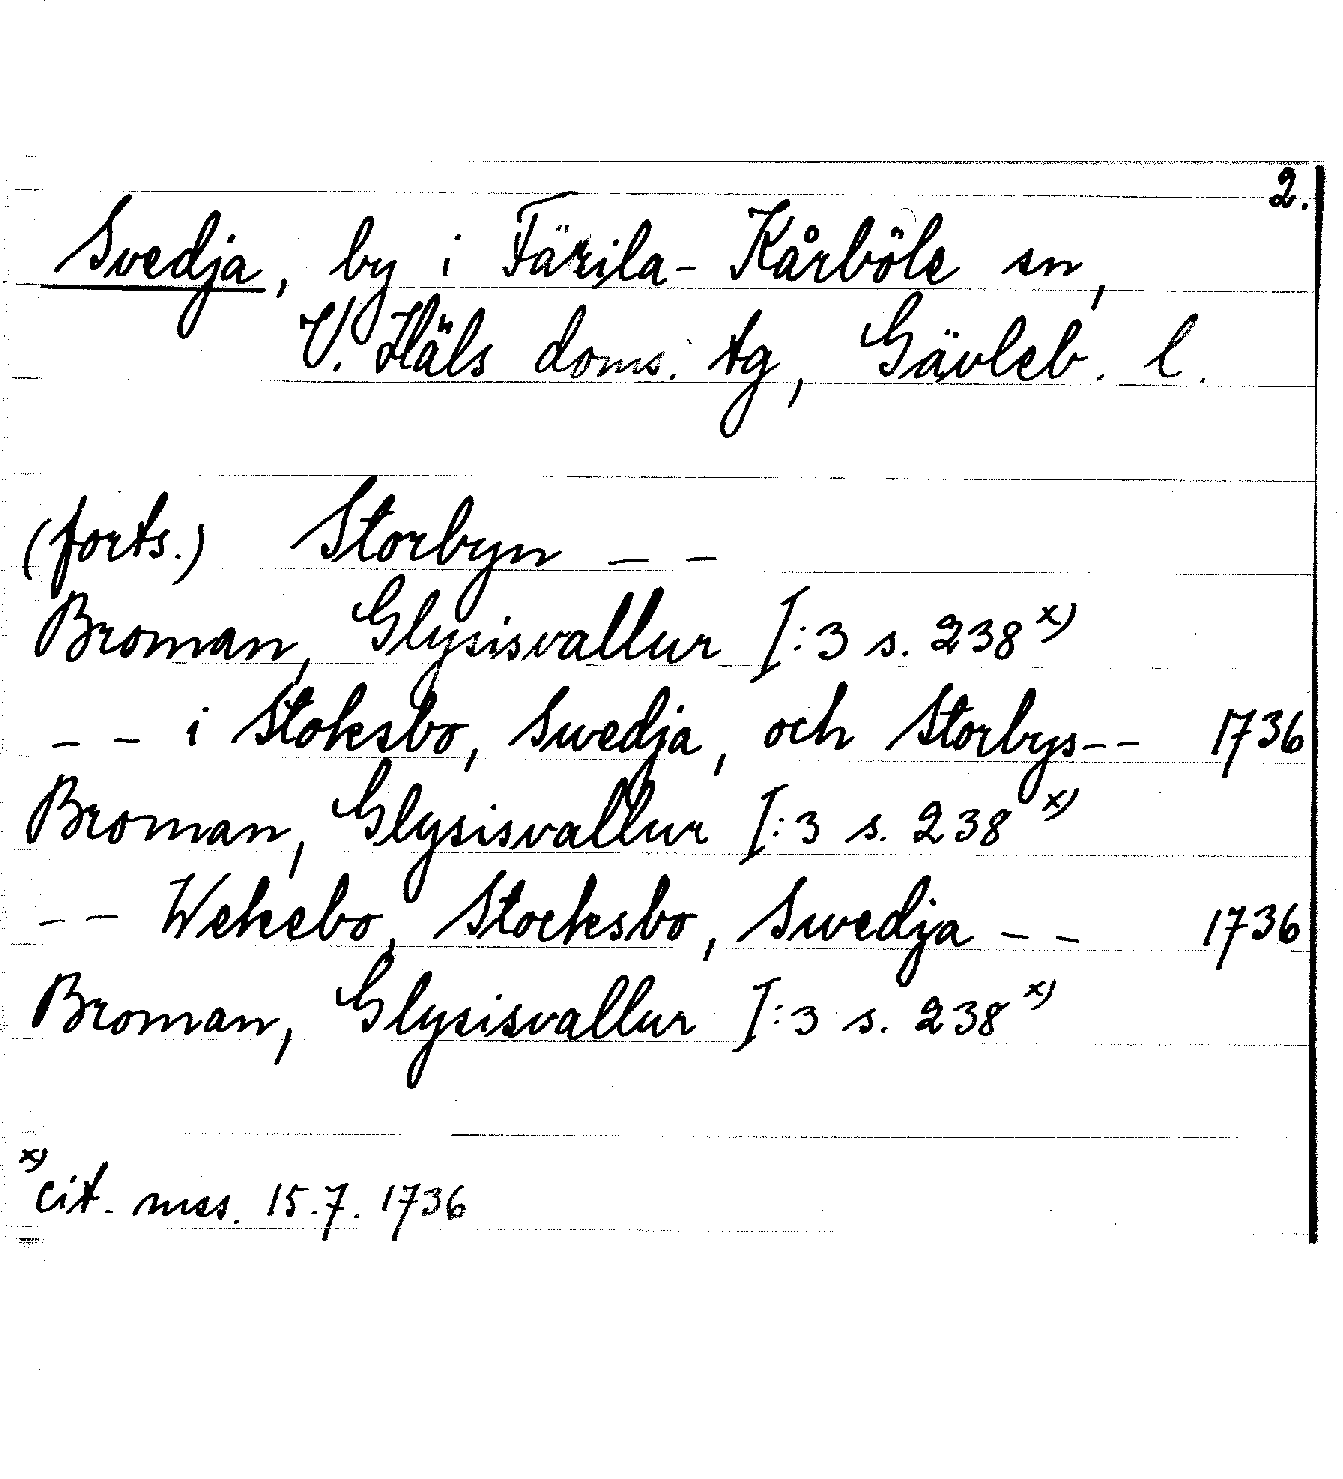 2.
Svedja, by i Färila-Kårböle sn,
V. Häls doms. tg, Gävleb. l.
(forts.) Storbyn – –
Broman, Glysisvallur I:3 s. 238 x)
– – i Stoksbo, Swedja, och Storbys – – 1736
Broman, Glysisvallur I:3 s. 238 x)
– – Weksbo, Stocksbo, Swedja – – 1736
Broman, Glysisvallur I:3 s. 238 x)
x) cit. mss. 15.7. 1736